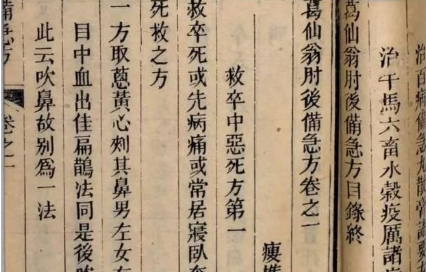 治百病備急丸散膏諸要方
治牛馬六畜水穀疫厲諸
葛仙翁肘後備急方目錄終
葛仙翁肘後備急方卷之一
救卒中惡死方第一
救卒死或先病痛或常居寢臥奄
死救之方
一方取蔥黃心刺其鼻男左女右
目中血出佳扁鵲法同是後
此云吹鼻故别為一法
備急方 卷之一